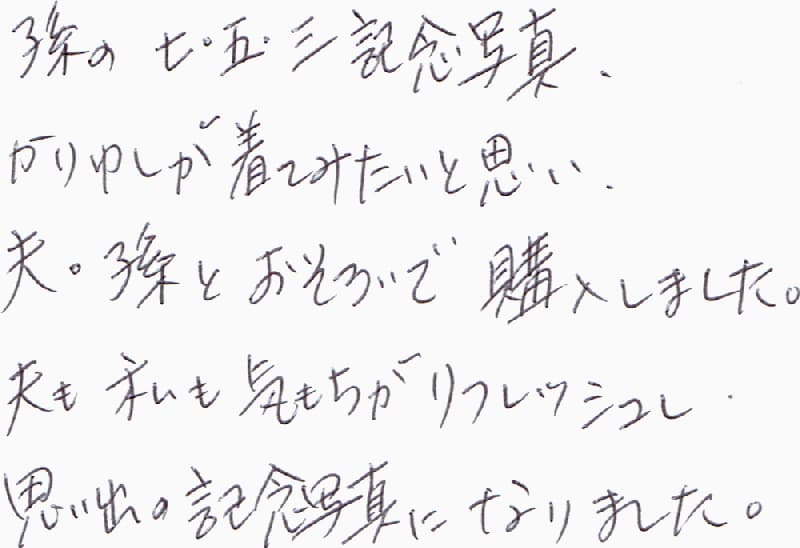 孫の七・五・三記念写真、
かりゆしが着てみたいと思い、
夫。孫とおそろいで購入しました。
夫も私も気もちがリフレッシュし、
思い出の記念写真になりました。